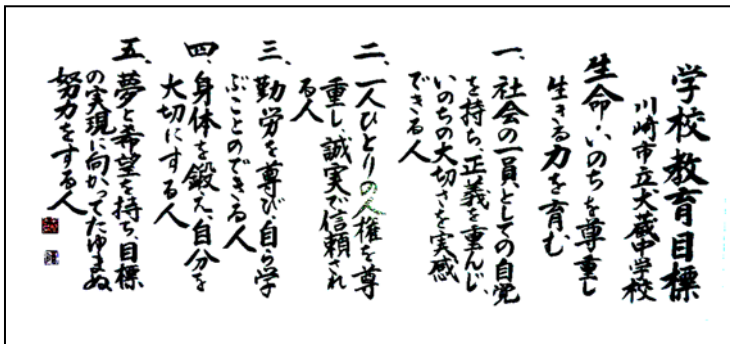 学校教育目標
川崎市立犬蔵中学校
生命・いのちを尊重し
生きる力を育む
一、社会の一員としての自覚
を持ち、正義を重んじ、
いのちの大切さを実感
できる人
二、一人ひとりの人権を尊
重し、誠実で信頼され
る人
三、勤労を尊び、自ら学
ぶことのできる人
四、身体を鍛え、自分を
大切にする人
五、夢と希望を持ち、目標
の実現に向かってたゆまぬ
努力をする人